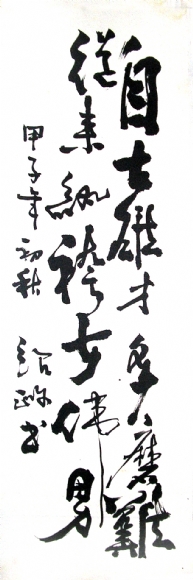 自古雄才多磨難
從來紈袴少偉男
甲子年初秋
書